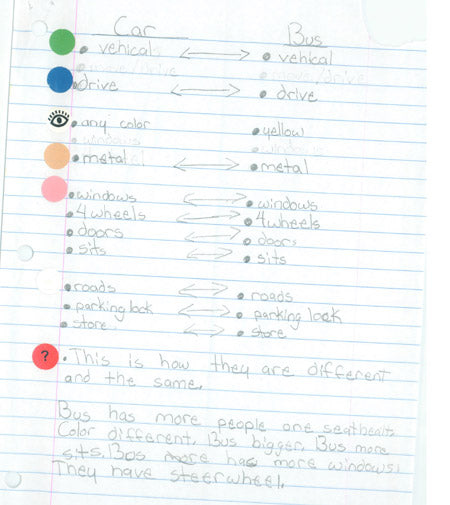 Car Bus
• vehicals ⟷ • vehical
• move/drive • move/drive
• drive ⟷ • drive
• any color • yellow
• windows • windows
• metal ⟷ • metal
• windows ⟷ • windows
• 4 wheels ⟷ • 4 wheels
• doors ⟷ • doors
• sits ⟷ • sits
• roads ⟷ • roads
• parking lock ⟷ • parking lock
• store ⟷ • store
? • This is how they are different
and the same.
Bus has more people one seatbealts
Color different, Bus bigger, Bus more
sits. Bos more has more windows.
They have steerwheel.